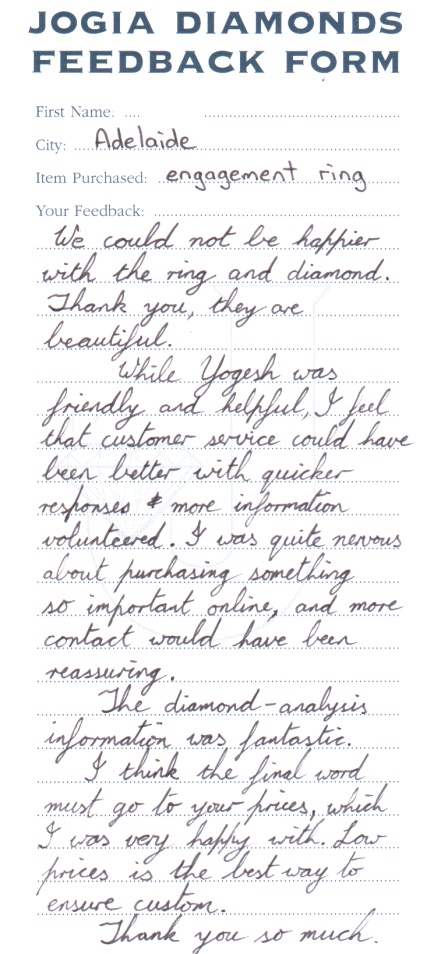 JOGIA DIAMONDS
FEEDBACK FORM
First Name:
City: Adelaide
Item Purchased: engagement ring
Your Feedback:
We could not be happier
with the ring and diamond.
Thank you, they are
beautiful.
While Yogesh was
friendly and helpful, I feel
that customer service could have
been better with quicker
responses & more information
volunteered. I was quite nervous
about purchasing something
so important online, and more
contact would have been
reassuring.
The diamond-analysis
information was fantastic.
I think the final word
must go to your prices, which
I was very happy with. Low
prices is the best way to
ensure custom.
Thank you so much.